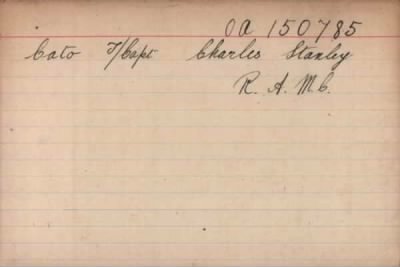 OA 150785
Cato T/Capt Charles Stanley
R. A. M. C.